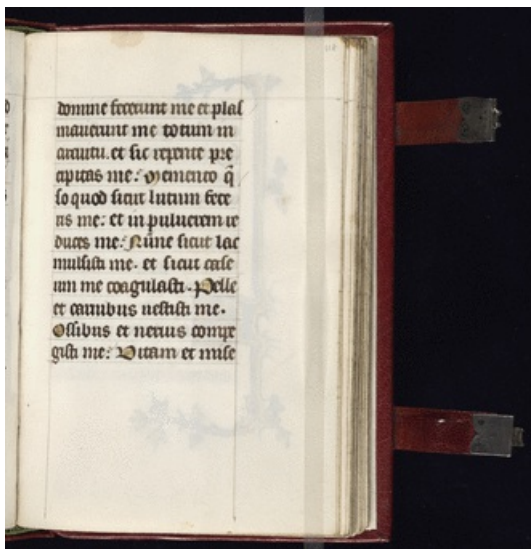 domine fecerunt me et plas
mauerunt me totum in
circuitu. et sic repente pre
cipitas me: Memento q̄
so quod sicut lutum fece
ris me: et in puluerem re
duces me: Nōne sicut lac
mulsisti me. et sicut case
um me coagulasti. Pelle
et carnibus uestisti me.
Ossibus et neruis compe
gisti me: Vitam et mise